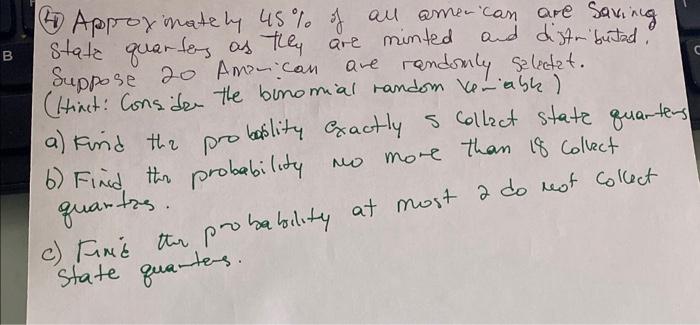 ④ Approximately 45% of all american are Saving
State quarters as they are minted and distributed.
Suppose 20 American are randomly selectet.
(Hinct: Consider the binomial random Variable)
a) Find the probability exactly 5 collect state quarters
b) Find the probability no more than 18 collect
quarters.
c) Find the probability at most 2 do not collect
State quarters.
B